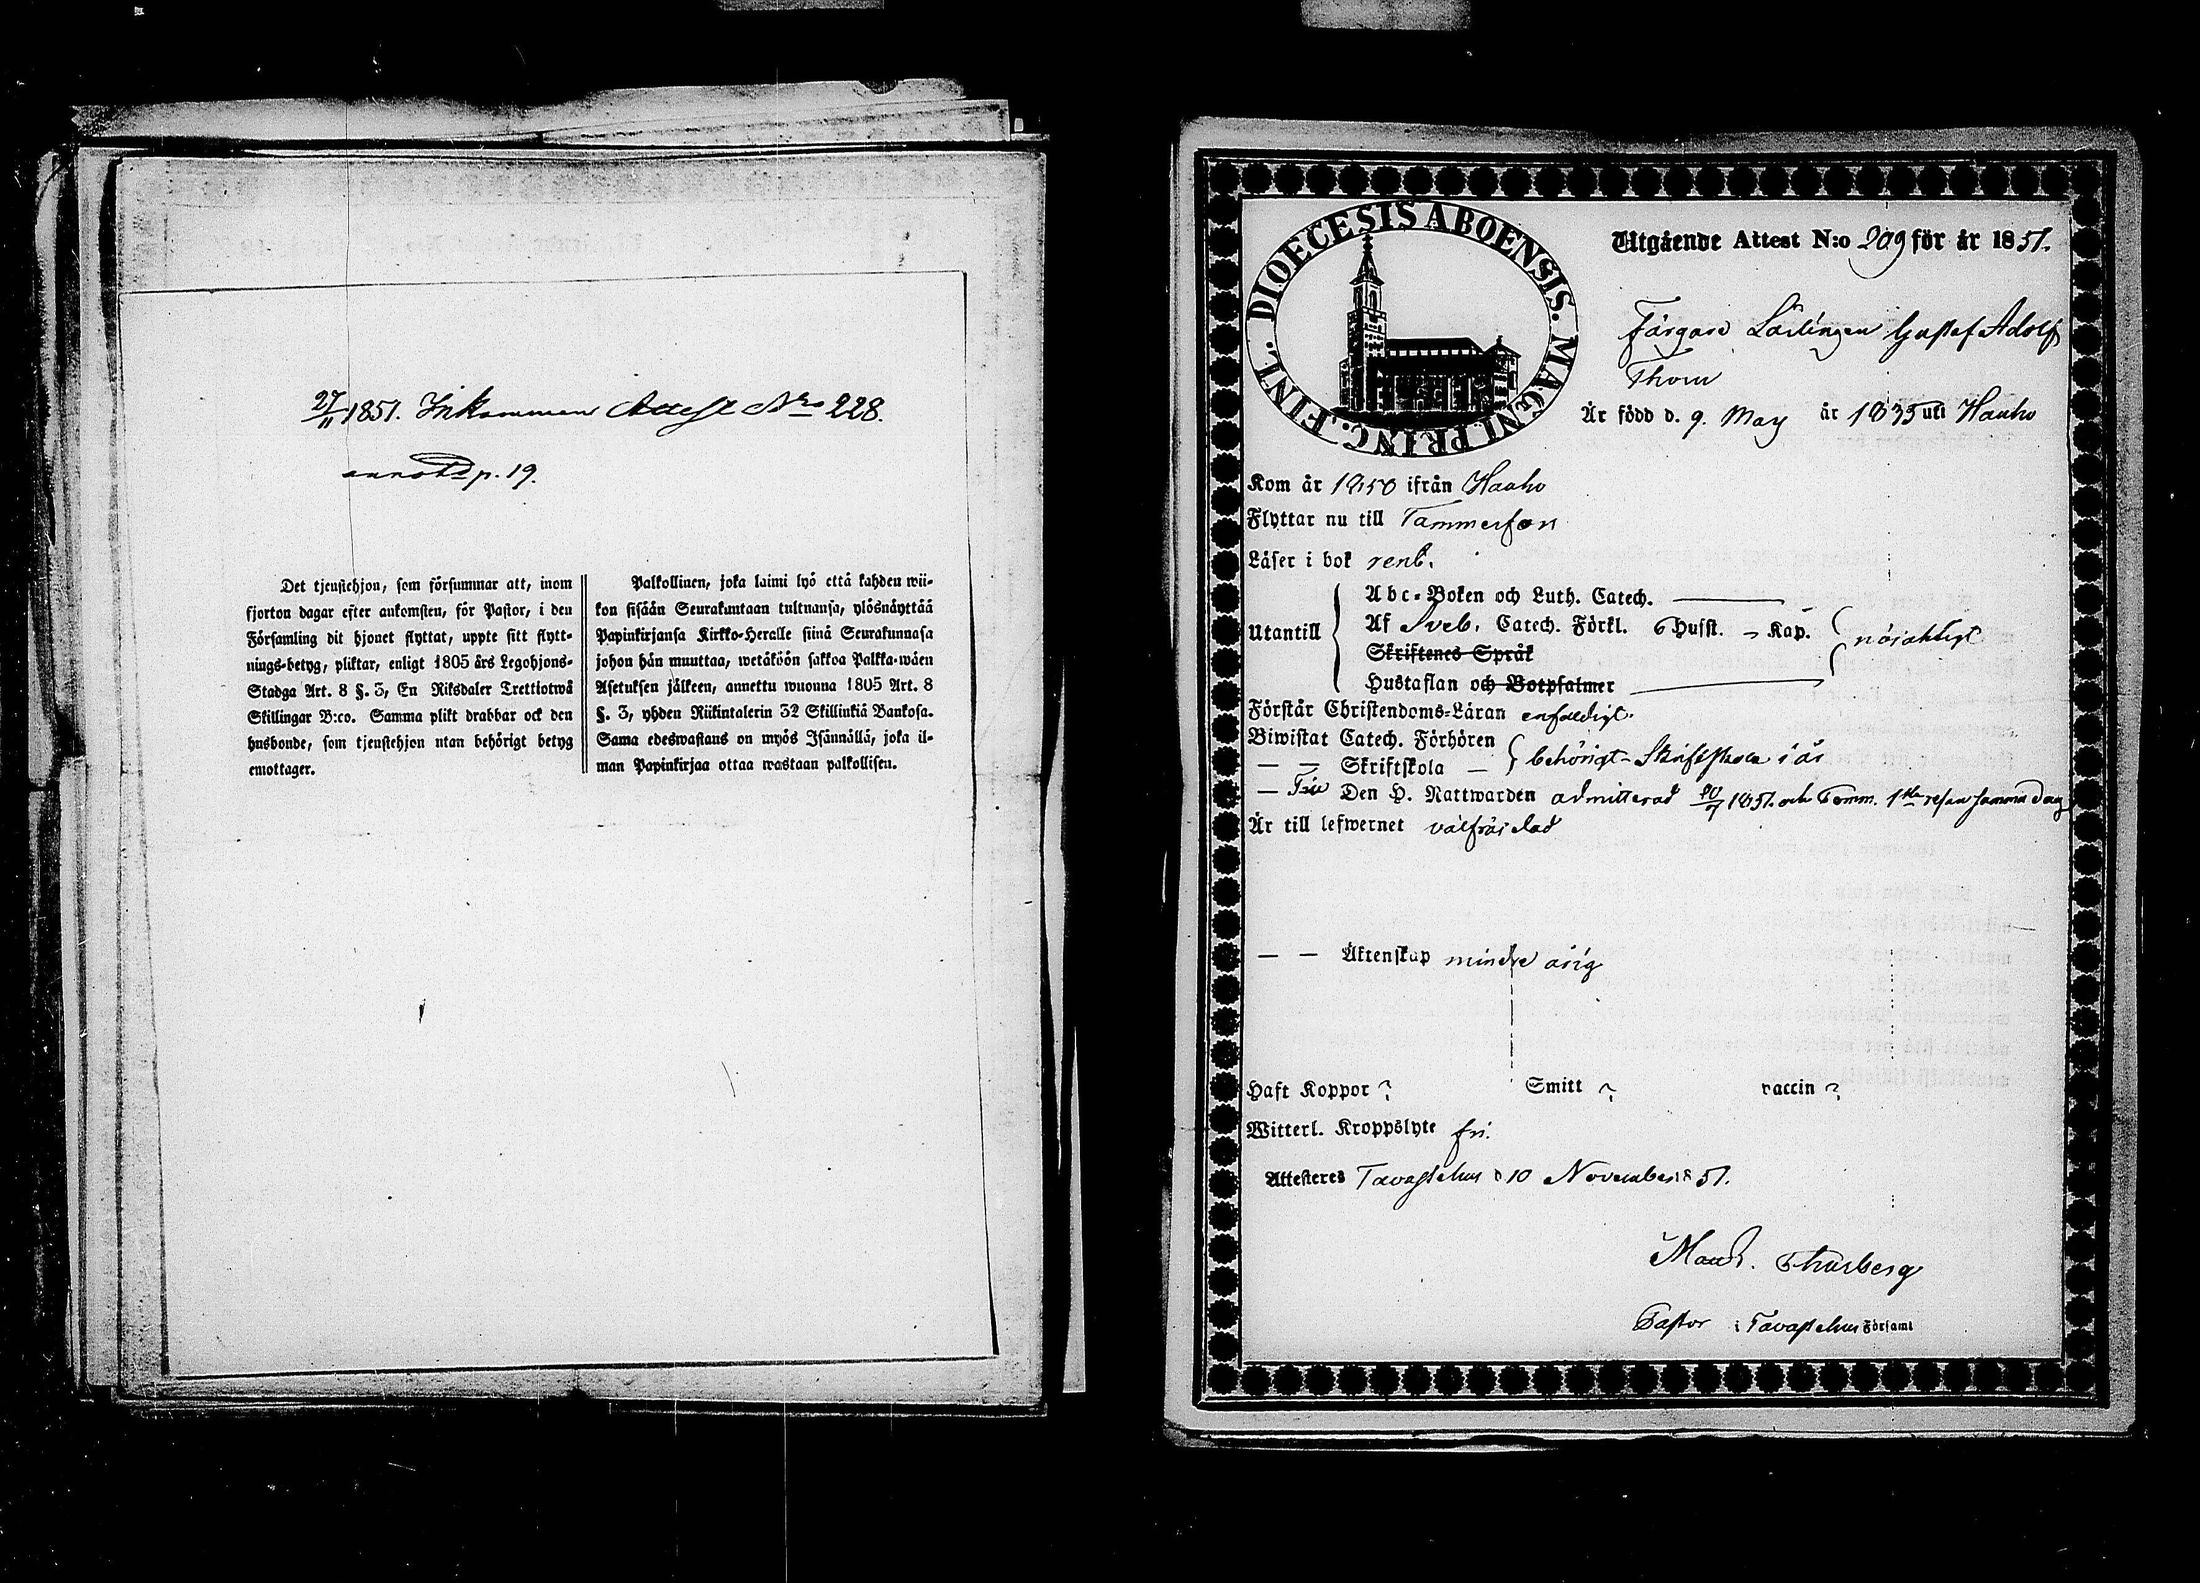 27/11 1851. Inkommen Attest Nro 228.
annotd p. 19.
Det tjenstehjon, som försummar att, inom
fjorton dagar efter ankomsten, för Pastor, i den
Församling dit hjonet flyttat, uppte sitt flytt-
nings-betyg, pliktar, enligt 1805 års Legohjons-
Stadga Art. 8 §. 3, En Riksdaler Trettiotwå
Skillingar B:co. Samma plikt drabbar ock den
husbonde, som tjenstehjon utan behörigt betyg
emottager.
Palkollinen, joka laimi lyö että kahden wii-
kon sisään Seurakuntaan tultuansa, ylösnäyttää
Papinkirjansa Kirkko-Heralle siinä Seurakunnasa
johon hän muuttaa, wetäköön sakkoa Palkka-wäen
Asetuksen jälkeen, annettu wuonna 1805 Art. 8
§. 3, yhden Riikintalerin 32 Skillinkiä Bankosa.
Sama edeswastaus on myös Isännällä, joka il-
man Papinkirjaa ottaa wastaan palkollisen.
DIOECESIS ABOENSIS. MAGNI PRINC. FINL.
Utgående Attest N:o 209 för år 1851.
Färgare Lärlingen Gustaf Adolf
Thom
Är född d. 9. May år 1835 uti Hauho
Kom år 1850 ifrån Hauho
Flyttar nu till Tammerfors
Läser i bok rent.
Utantill
Abc-Boken och Luth. Catech.
Af Sveb. Catech. Förkl. 6 Husst. - Kap.
Skriftenes Språk
Hustaflan och Botpsalmer
nöjaktigt
Förstår Christendoms-Läran enfaldigt.
Biwistat Catech. Förhören
— — Skriftskola —
behörigt - Skriftskola i år
— Till Den H. Nattwarden admitterad 20/9 1851. och Comm. 1sta resan samma dag
Är till lefwernet välfräjdad
— — Äktenskap minderårig
Haft Koppor ? Smitt ? vaccin ?
Witterl. Kroppslyte fri.
Attesteres Tavastehus d 10 November 1851.
Maur. Thurberg
Pastor i Tavastehus Församl